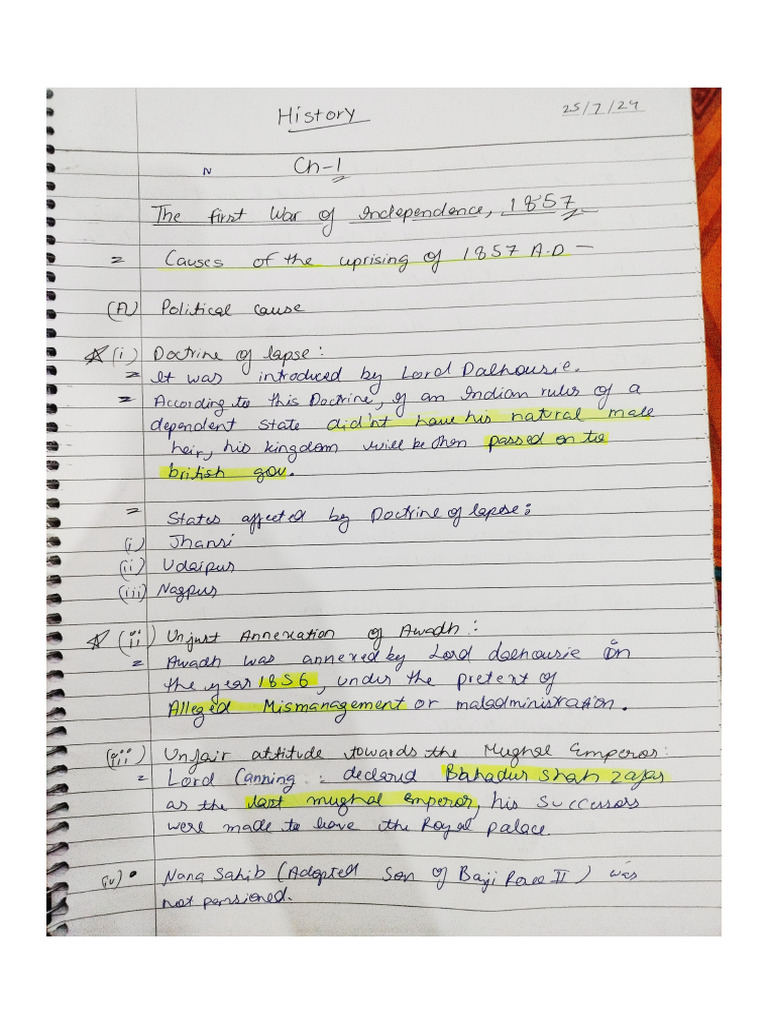 History
25/7/24
N
Ch-1
The first War of Independence, 1857
= Causes of the uprising of 1857 A.D —
(A) Political cause
☆ (i) Doctrine of lapse:
= It was introduced by Lord Dalhousie.
= According to this Doctrine, if an Indian ruler of a
dependent state didn't have his natural male
heir, his kingdom will be then passed on to
british gov.
= States affected by Doctrine of lapse:
(i) Jhansi
(ii) Udaipur
(iii) Nagpur
☆ (ii) Unjust Annexation of Awadh:
= Awadh was annexed by Lord dalhousie in
the year 1856, under the pretext of
Alleged Mismanagement or maladministration.
(iii) Unfair attitude towards the Mughal Emperor:
= Lord Canning : declared Bahadur Shah zafar
as the last mughal emperor, his Successors
were made to leave the Royal palace.
(iv) • Nana Sahib (Adopted Son of Baji Rao II) was
not pensioned.